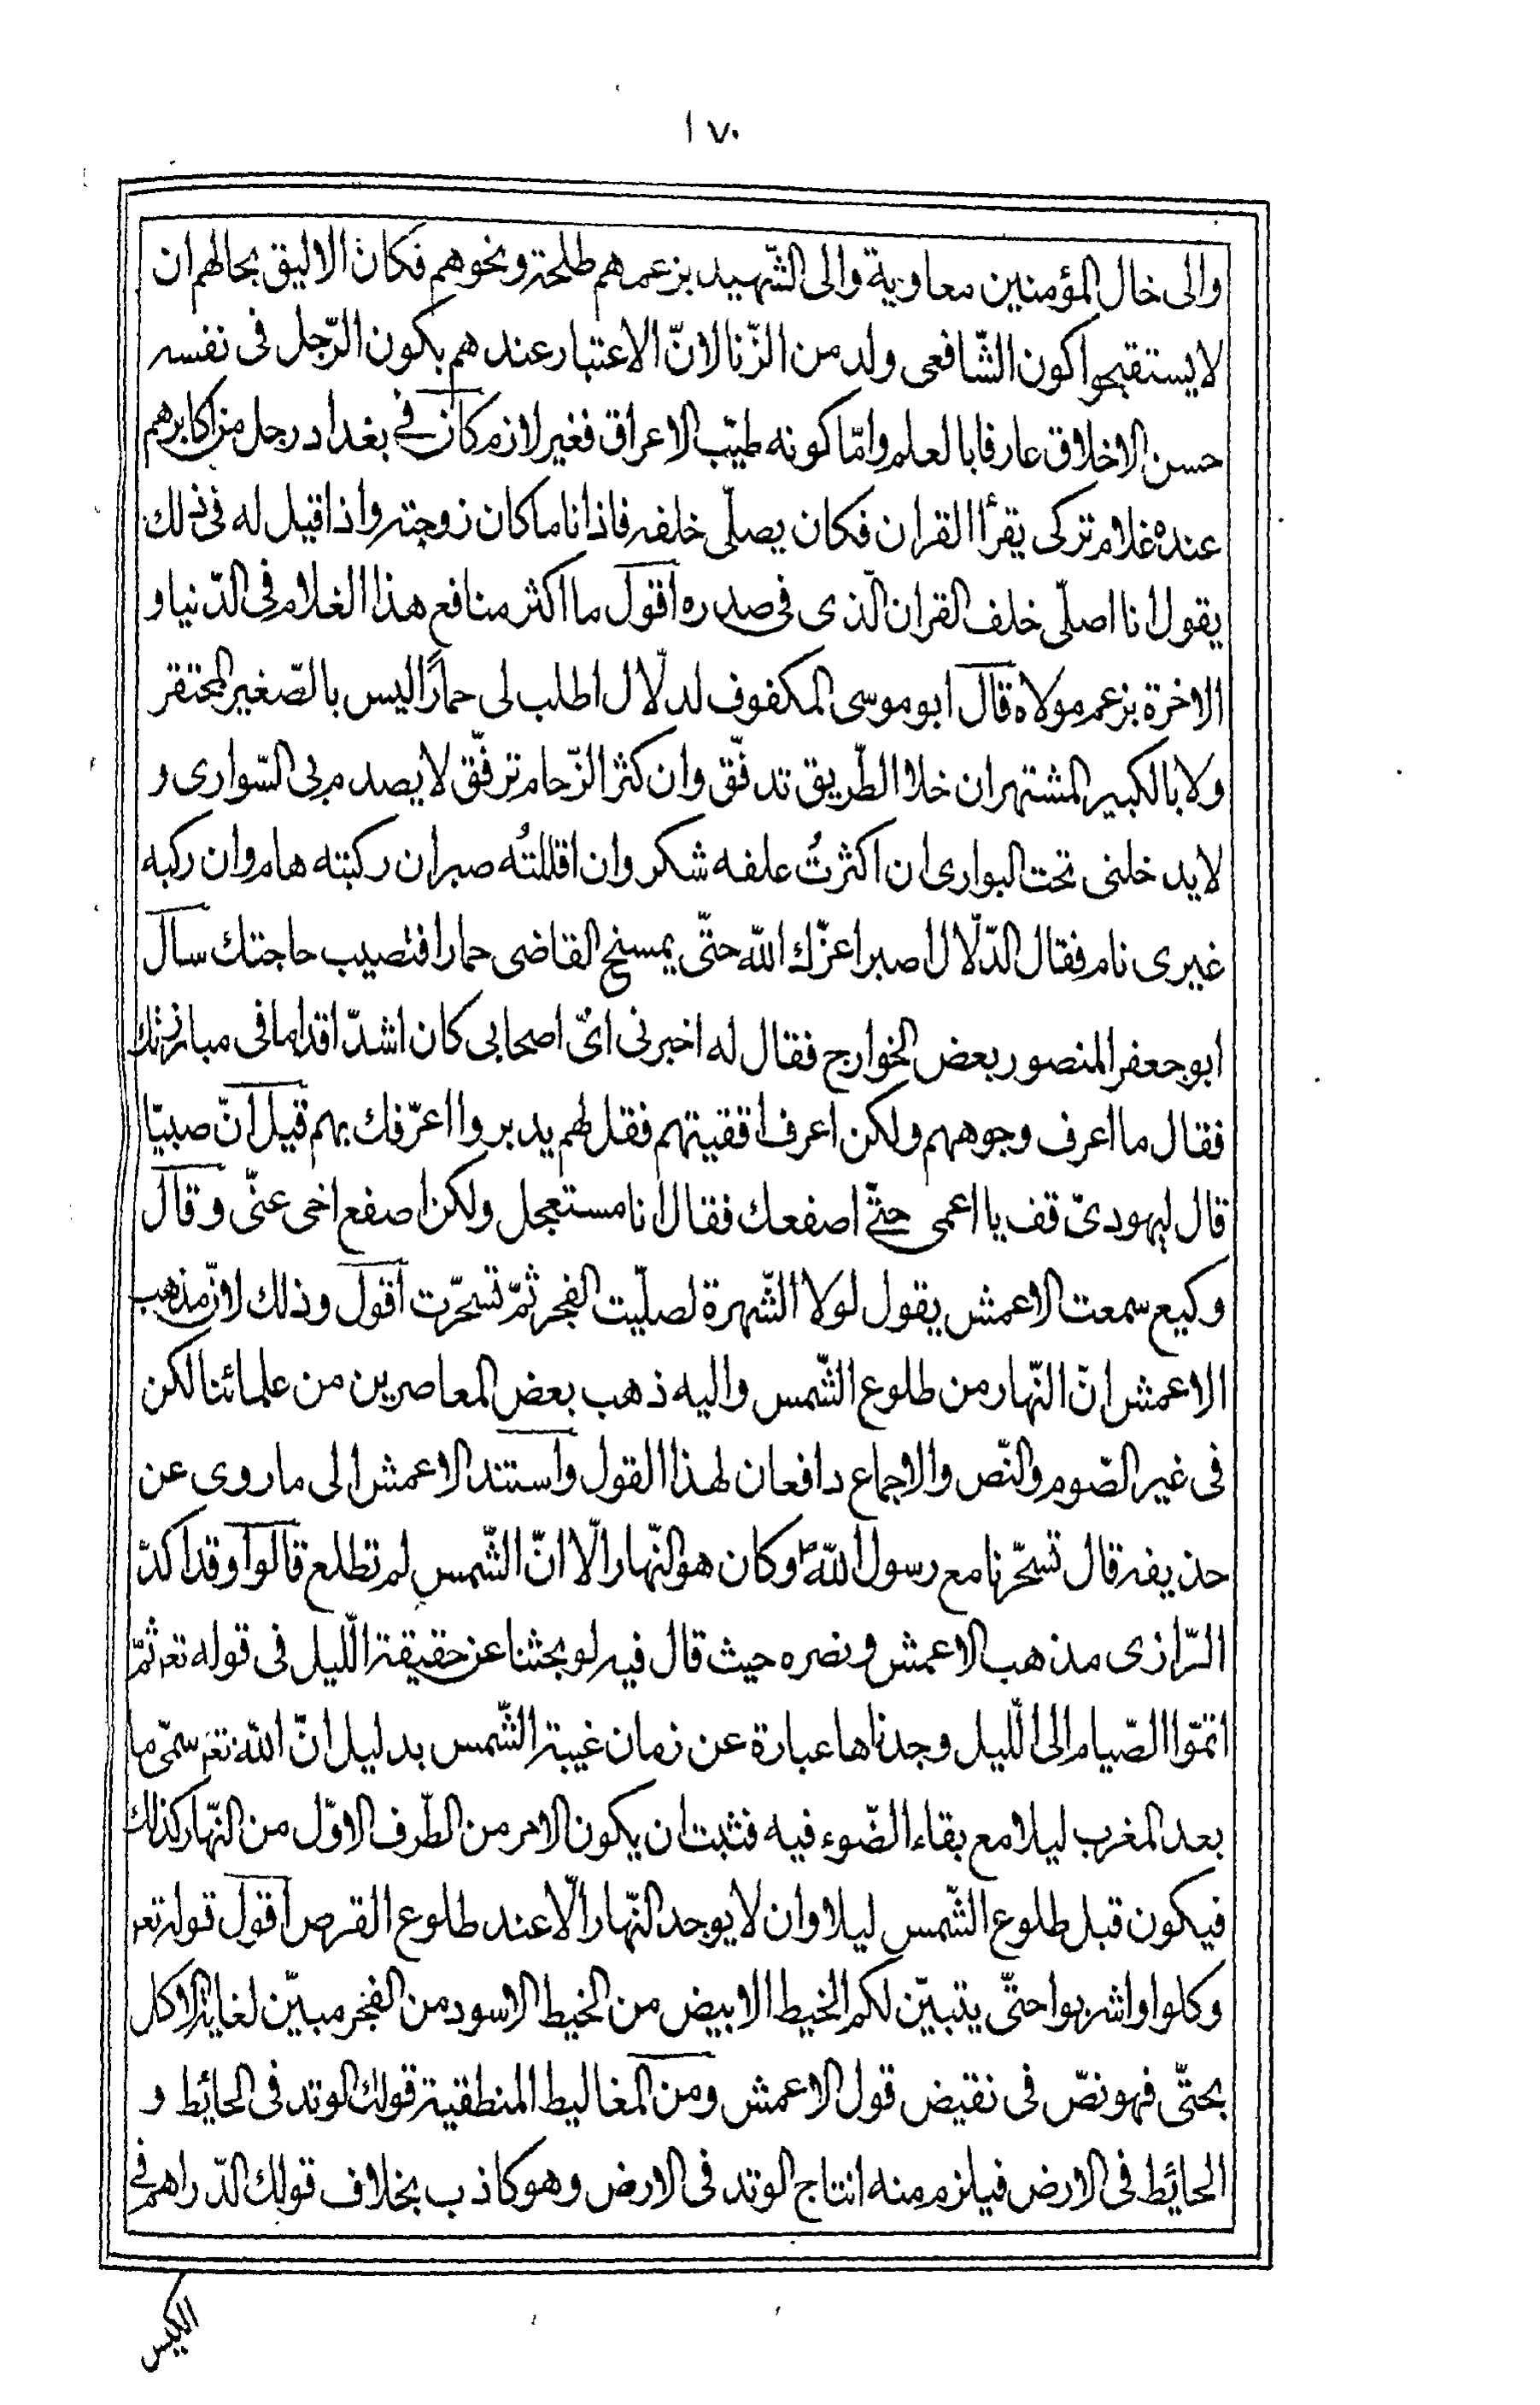 ١٧٠
والى خال المؤمنين معاوية والى الشّهيد بزعمهم طلحة ونحوهم فكان الاليق بحالهم ان
لا يستقبحوا كون الشّافعى ولد من الزّنا لانّ الاعتبار عندهم بكون الرّجل فى نفسه
حسن الاخلاق عارفا بالعلم وامّا كونه طيّب الاعراق فغير لازم كان فى بغداد رجل من اكابرهم
عنده غلام تركى يقرأ القران فكان يصلّى خلفه فاذا ناما كان زوجته واذا قيل له فى ذلك
يقول انا اصلّى خلف القران الّذى فى صدره اقول ما اكثر منافع هذا الغلام فى الدّنيا و
الاخرة بزعم مولاه قال ابو موسى المكفوف لدلّال اطلب لى حمارًا ليس بالصّغير المحتقر
ولا بالكبير المشتهر ان خلا الطّريق تدفّق وان كثر الزّحام ترفّق لا يصدم بى السّوارى و
لا يدخلنى تحت البوارى ان اكثرتُ علفه شكر وان اقللتُه صبر ان ركبته هام وان ركبه
غيرى نام فقال الدّلّال اصبر اعزّك اللّه حتّى يمسخ القاضى حمارا فتصيب حاجتك سأل
ابو جعفر المنصور بعض الخوارج فقال له اخبرنى اىّ اصحابى كان اشدّ اقداما فى مبارزتك
فقال ما اعرف وجوههم ولكن اعرف اقفيتهم فقل لهم يدبروا اعرّفك بهم قيل انّ صبيّا
قال ليهودىّ قف يا اعمى حتّى اصفعك فقال انا مستعجل ولكن اصفع اخى عنّى وقال
وكيع سمعت الاعمش يقول لولا الشّهرة لصلّيت الفجر ثمّ تسحّرت اقول وذلك لانّ مذهب
الاعمش انّ النّهار من طلوع الشّمس واليه ذهب بعض المعاصرين من علمائنا لكن
فى غير الصّوم والنّص والاجماع دافعان لهذا القول واستند الاعمش الى ما روى عن
حذيفه قال تسحّرنا مع رسول اللّه ص وكان هو النّهار الّا انّ الشّمس لم تطلع قالوا وقد اكدّ
الرّازى مذهب الاعمش ونصره حيث قال فيه لو بحثنا عن حقيقة الّليل فى قوله تعم ثمّ
اتمّوا الصّيام الى الّليل وجدناها عبارة عن زمان غيبة الشّمس بدليل انّ اللّه تعم سمّى ما
بعد المغرب ليلا مع بقاء الضّوء فيه فثبت ان يكون الامر من الطّرف الاوّل من النّهار كذلك
فيكون قبل طلوع الشّمس ليلا وان لا يوجد النّهار الّا عند طلوع القرص اقول قوله تعم
وكلوا واشربوا حتّى يتبيّن لكم الخيط الابيض من الخيط الاسود من الفجر مبيّن لغاية الاكل
بحتّى فهو نصّ فى نقيض قول الاعمش ومن المغاليط المنطقية قولك الوتد فى الحائط و
الحائط فى الارض فيلزم منه انتاج الوتد فى الارض وهو كاذب بخلاف قولك الدّراهم فى
الكيس